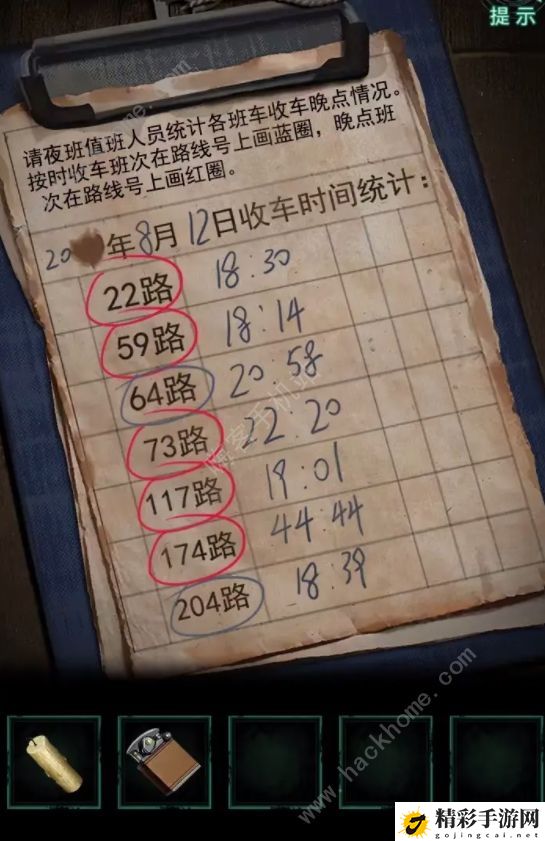 提示
请夜班值班人员统计各班车收车晚点情况。
按时收车班次在路线号上画蓝圈，晚点班
次在路线号上画红圈。
20 年8月12日收车时间统计：
22路 18:30
59路 18:14
64路 20:58
73路 22.20
117路 19:01
174路 44:44
204路 18:39
嗨客手机站
www.hackhome.com
精彩手游网
gojingcai.net